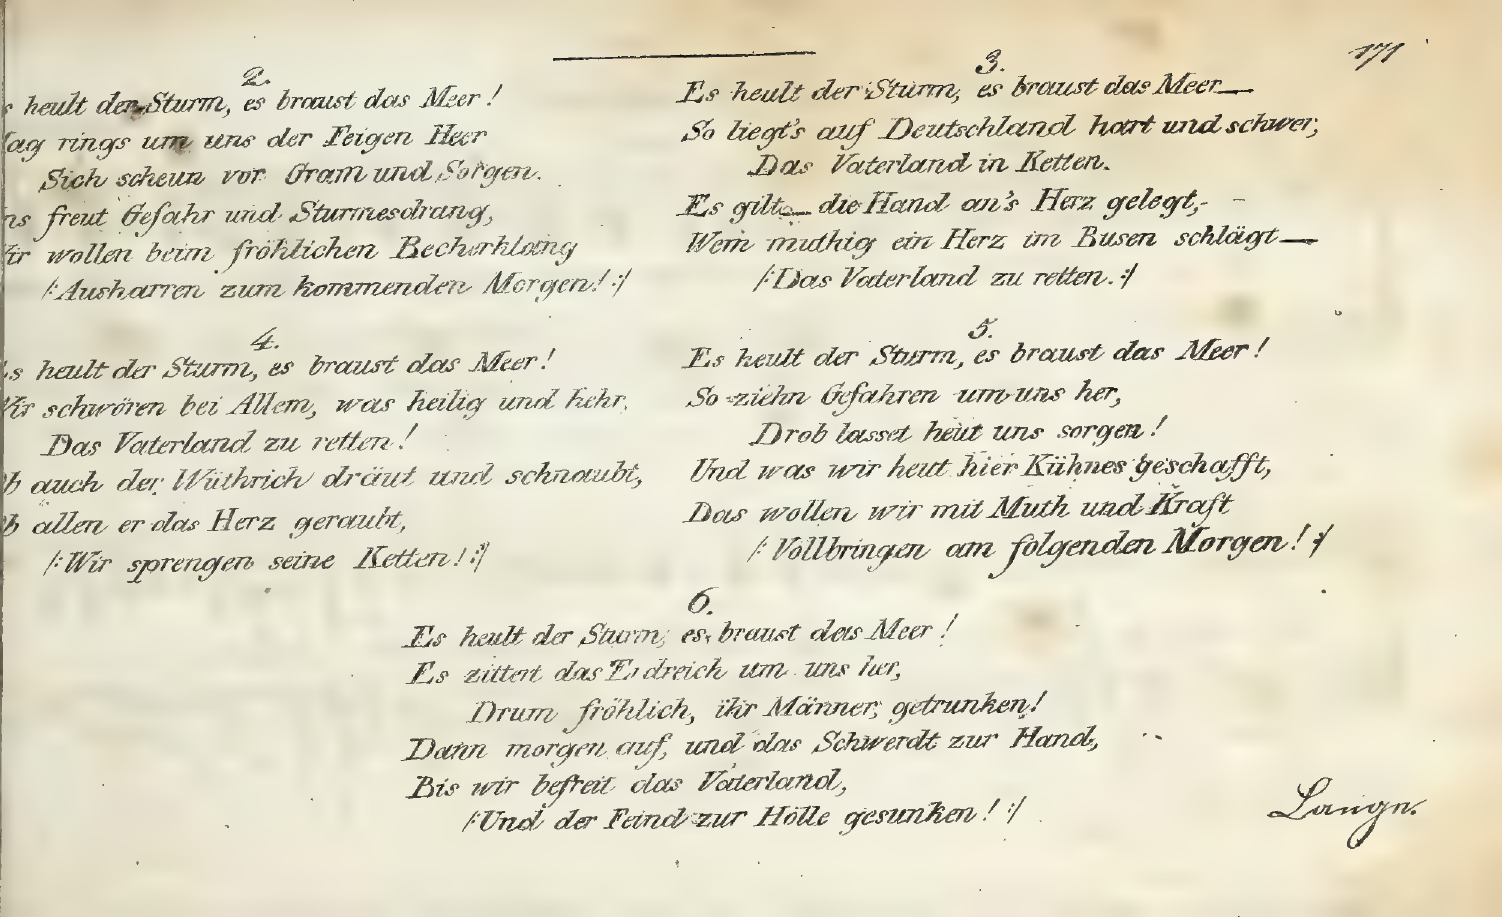 171
2.
heult der Sturm, es braust das Meer!
rings um uns der Feigen Heer
Sich scheun vor Gram und Sorgen.
freut Gefahr und Sturmesdrang,
wollen beim fröhlichen Becherklang
/:Ausharren zum kommenden Morgen!:/
3.
Es heult der Sturm, es braust das Meer—
So liegt's auf Deutschland hart und schwer,
Das Vaterland in Ketten.
Es gilt — die Hand an's Herz gelegt,-
Wem muthig ein Herz im Busen schlägt—
/:Das Vaterland zu retten.:/
4.
Es heult der Sturm, es braust das Meer!
Wir schwören bei Allem, was heilig und hehr,
Das Vaterland zu retten!
Ob auch der Wüthrich dräut und schnaubt,
Ob allen er das Herz geraubt,
/:Wir sprengen seine Ketten!:/
5.
Es heult der Sturm, es braust das Meer!
So ziehn Gefahren um uns her,
Drob lasset heut uns sorgen!
Und was wir heut hier Kühnes geschafft,
Das wollen wir mit Muth und Kraft
/:Vollbringen am folgenden Morgen!:/
6.
Es heult der Sturm, es braust das Meer!
Es zittert das Erdreich um uns her,
Drum fröhlich, ihr Männer, getrunken!
Dann morgen auf, und das Schwerdt zur Hand,
Bis wir befreit das Vaterland,
/:Und der Feind zur Hölle gesunken!:/
Lange.